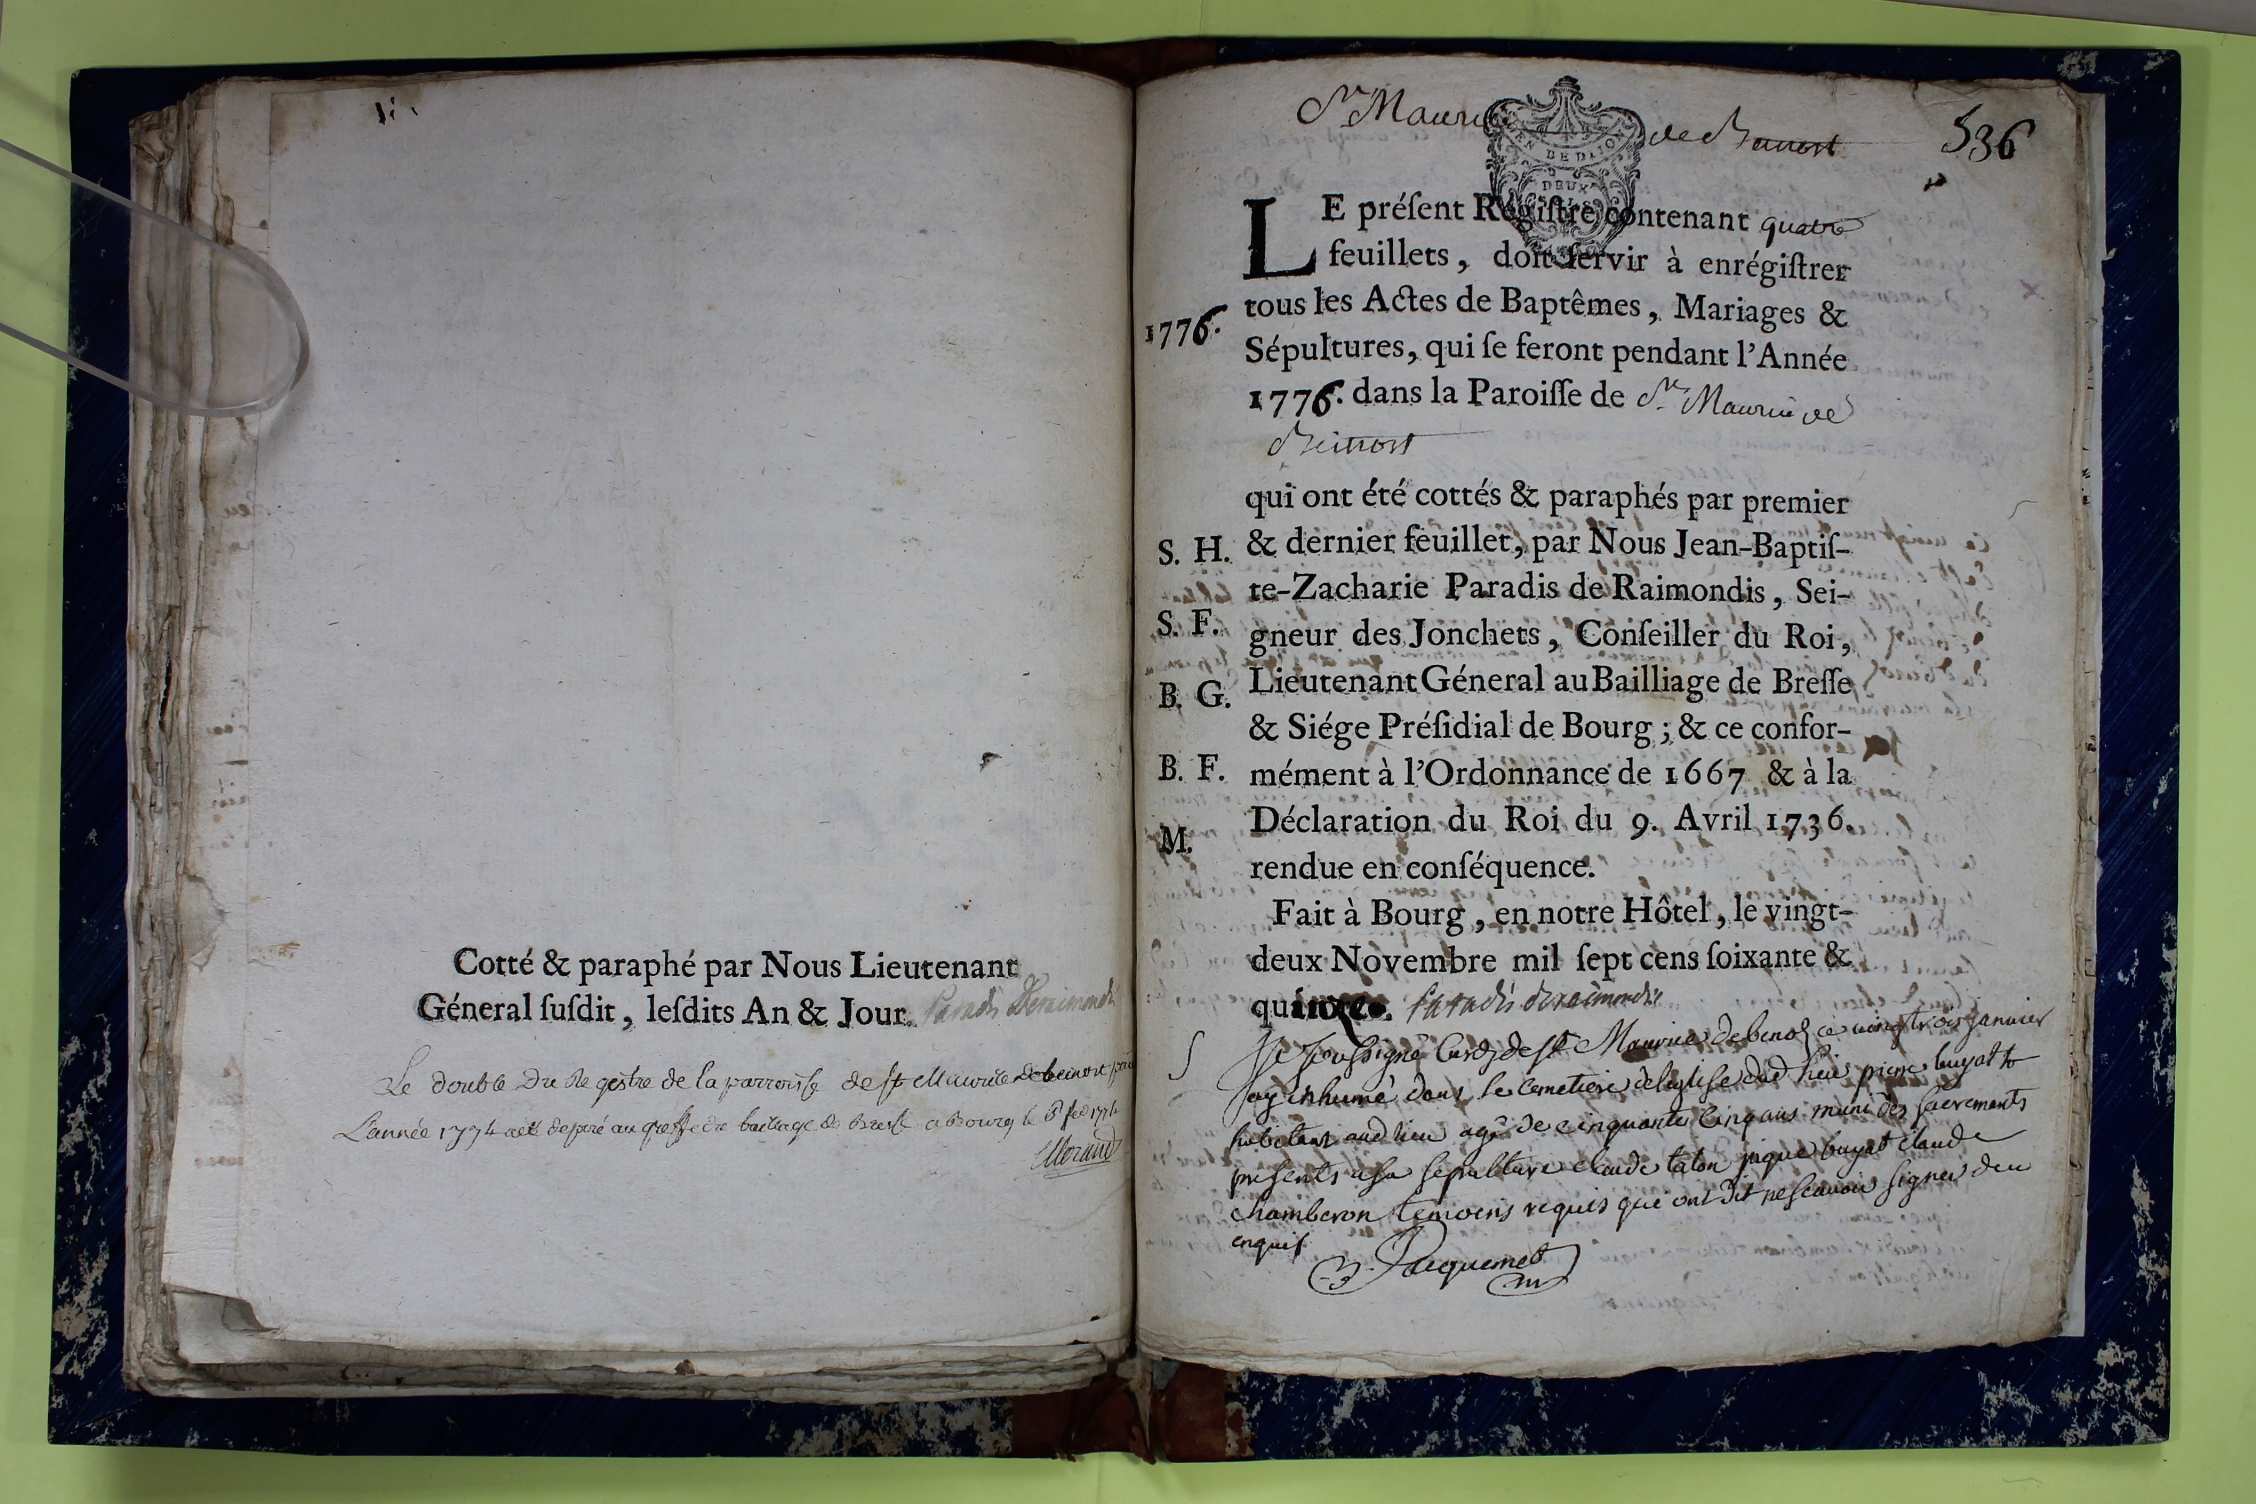 Cotté & paraphé par Nous Lieutenant
Géneral ſuſdit, leſdits An & Jour. Paradis Deraimondis
Le double Du Regestre de la parroisse de st Maurice de beinost pour
L'année 1774 a eté deposé au greffe du bailliage de Bresse a Bourg le
Morand
St Maurice de Beinost 536
GEN DE DIJON
DEUX
LE préſent Régiſtre contenant quatre
feuillets, doit ſervir à enrégiſtrer
tous les Actes de Baptêmes, Mariages &
1776.
Sépultures, qui ſe feront pendant l'Année
1776. dans la Paroiſſe de St Maurice de
Beinost
qui ont été cottés & paraphés par premier
S. H. & dernier feuillet, par Nous Jean-Baptiſ-
te-Zacharie Paradis de Raimondis, Sei-
S. F. gneur des Jonchets, Conſeiller du Roi,
B. G. Lieutenant Géneral au Bailliage de Breſſe
& Siége Préſidial de Bourg ; & ce confor-
B. F. mément à l'Ordonnance de 1667 & à la
M. Déclaration du Roi du 9. Avril 1736.
rendue en conſéquence.
Fait à Bourg, en notre Hôtel, le vingt-
deux Novembre mil ſept cens ſoixante &
quinze. Paradis deraimondis
S Je soussigné Curé de st Maurice de benost ce vingt trois janvier
ay inhumé dans le Cemetiere de leglise dud lieu pierre buyat
habitant aud lieu agé de cinquante Cinq ans muni des sacrements
presents a sa sepulture claude talon jaque buyat claude
chamberon temoins requis qui ont dit ne scavoir signer de ce
enquis
Jacquemet